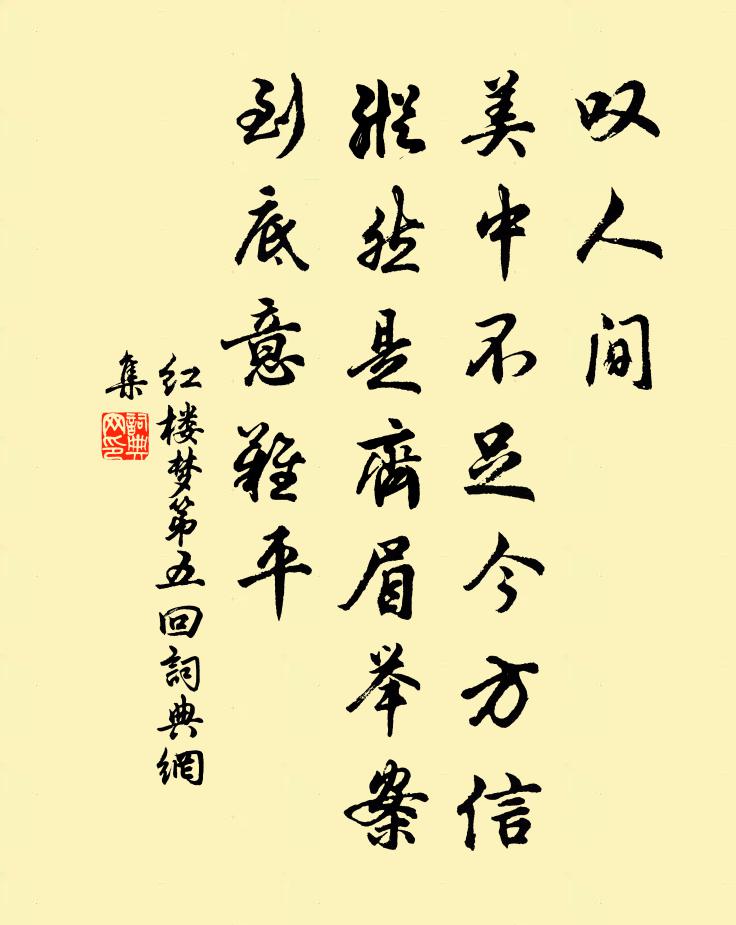 叹人间
美中不足今方信
纵然是齊眉举案
到底意難平
红楼梦第五回詞典網
集
詞典
网印